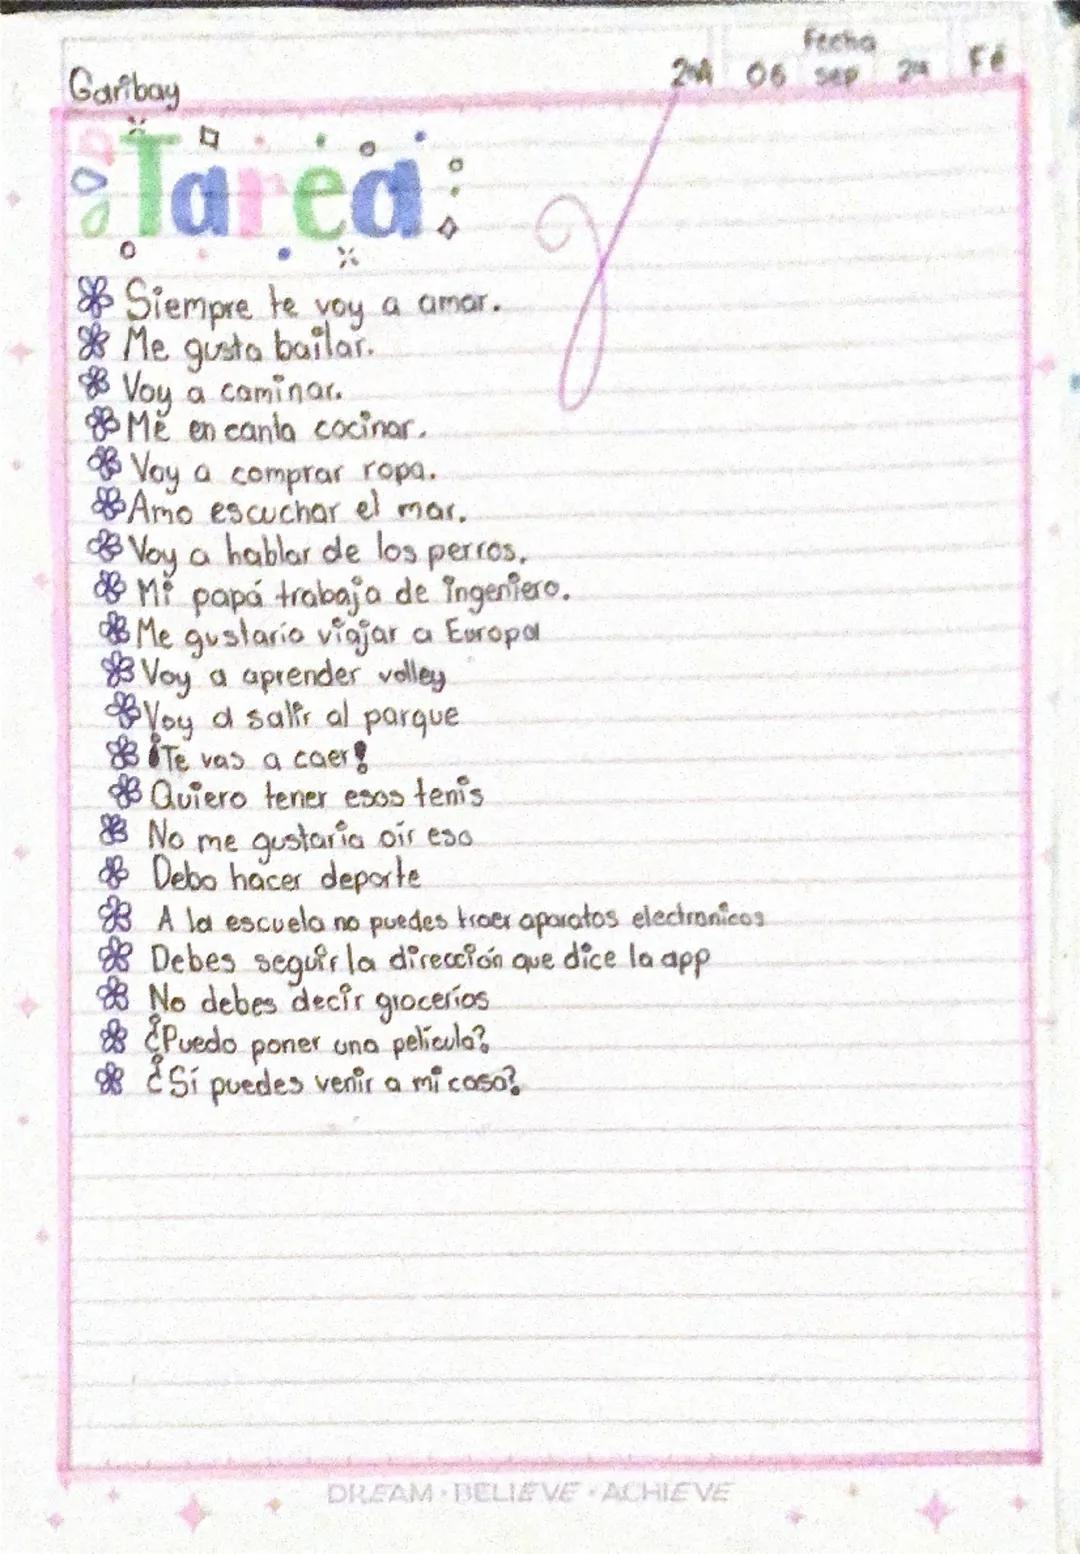 Fecha
Garibay 2ºA 06 sep 24 Fé
Tarea
Siempre te voy a amar.
Me gusta bailar.
Voy a caminar.
Me en canta cocinar.
Voy a comprar ropa.
Amo escuchar el mar.
Voy a hablar de los perros.
Mi papá trabaja de ingeniero.
Me gustaría viajar a Europa
Voy a aprender volley
Voy a salir al parque
¡Te vas a caer!
Quiero tener esos tenis
No me gustaría oír eso
Debo hacer deporte
A la escuela no puedes traer aparatos electronicos
Debes seguir la dirección que dice la app
No debes decir grocerías
¿Puedo poner una película?
¿Sí puedes venir a mi casa?
DREAM · BELIEVE · ACHIEVE